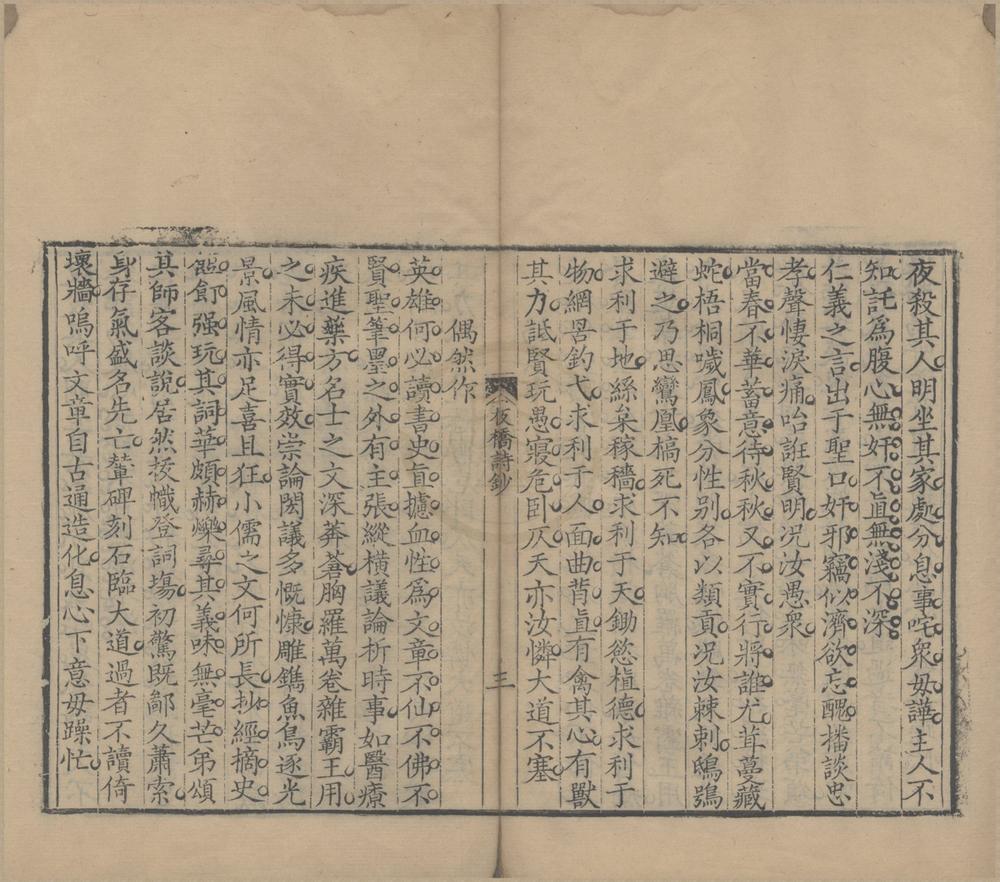 夜殺其人明坐其家處分息事咤衆毋譁主人不
知託為腹心無奸不眞無淺不深
仁義之言出于聖口奸邪竊似濟欲忘醜播談忠
孝聲悽淚痛咍誑賢明况汝愚衆
當春不華蓄意待秋秋又不實行將誰尤茸蔓藏
蛇梧桐噦鳳象分性别各以類貢况汝棘刺鴟鴞
避之乃思鸞凰槁死不知
求利于地絲枲稼穡求利于天鋤慾植德求利于
物網罟釣弋求利于人面曲背眞有禽其心有獸
其力詆賢玩愚寢危卧仄天亦汝憐大道不塞
板橋詩鈔
三
偶然作
英雄何必讀書史直攄血性為文章不仙不佛不
賢聖筆墨之外有主張縱橫議論析時事如醫療
疾進藥方名士之文深莽蒼胸羅萬卷雜霸王用
之未必得實效崇論閎議多慨慷雕鐫魚鳥逐光
景風情亦足喜且狂小儒之文何所長抄經摘史
餖飣强玩其詞華頗赫爍尋其義味無毫芒弟頌
其師客談說居然拔幟登詞塲初驚既鄙久蕭索
身存氣盛名先亡輦碑刻石臨大道過者不讀倚
壞牆嗚呼文章自古通造化息心下意毋躁忙